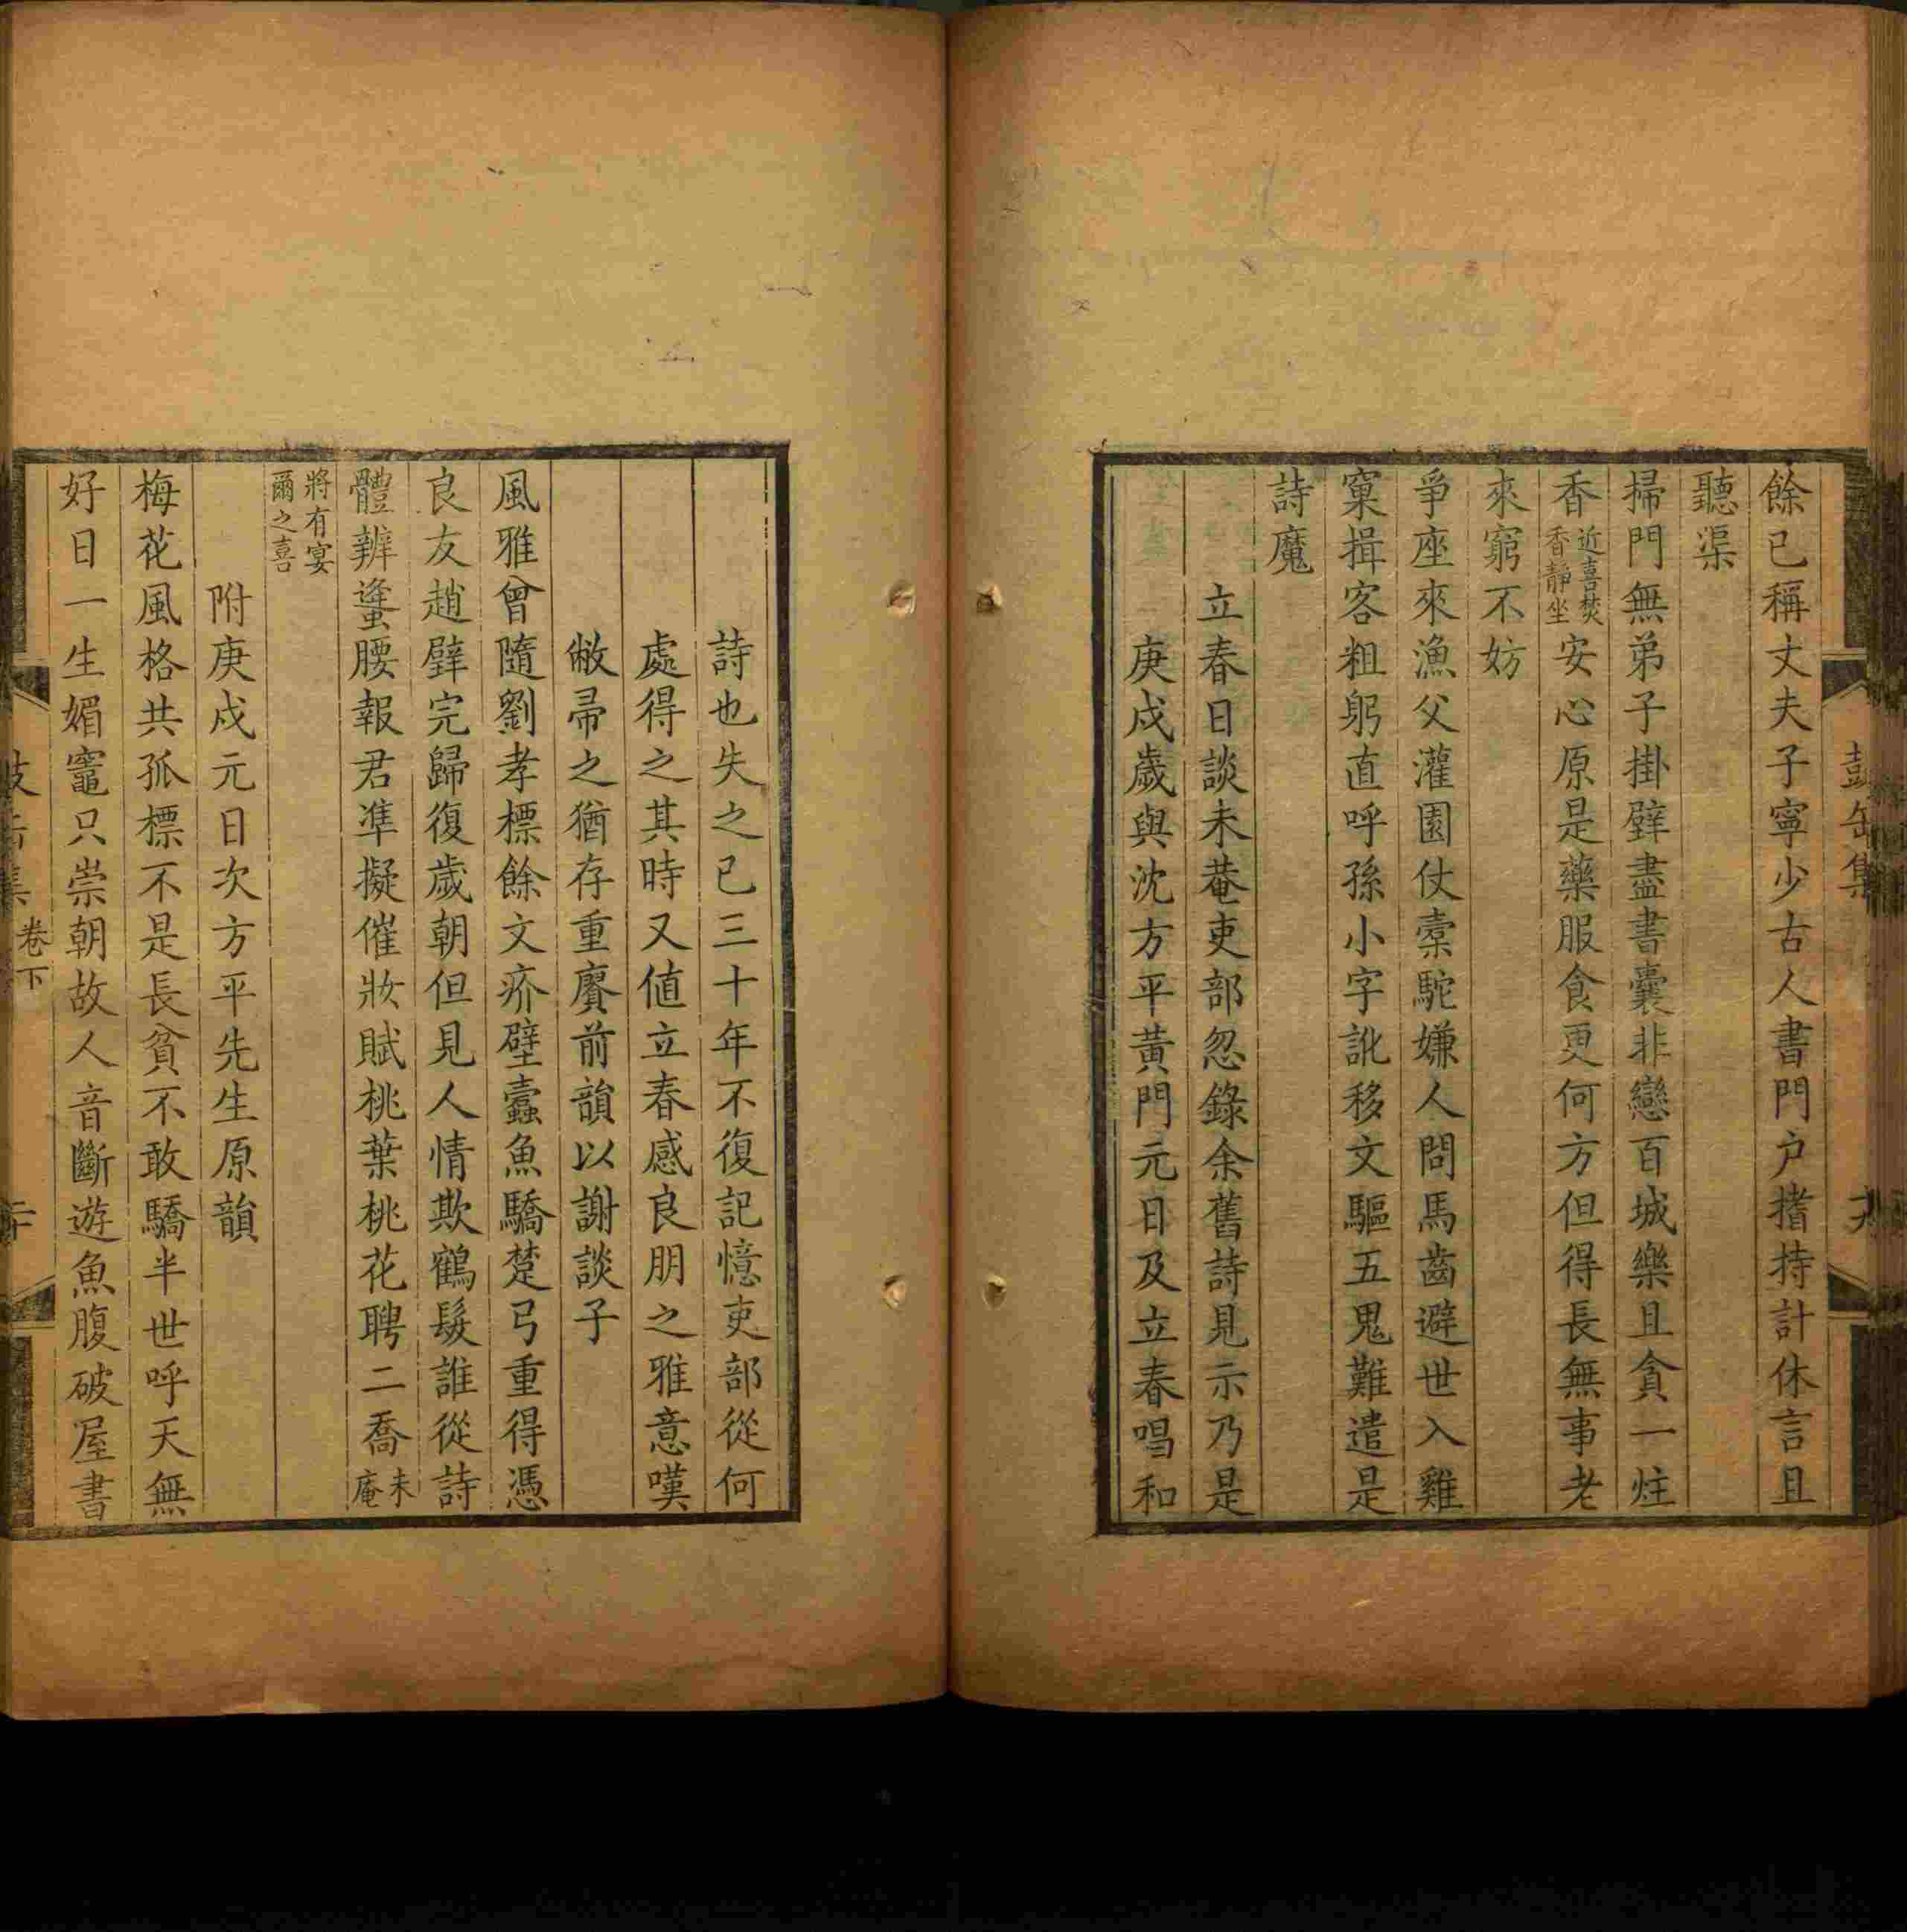 餘已稱丈夫子寧少古人書門户撦持計休言且
聽渠
掃門無弟子掛壁盡書囊非戀百城樂且貪一炷
香近喜焚香靜坐安心原是藥服食更何方但得長無事老
來窮不妨
爭座來漁父灌園仗橐駝嫌人問馬齒避世入雞
窠揖客粗躬直呼孫小字訛移文驅五鬼難遣是
詩魔
立春日談未菴吏部忽錄余舊詩見示乃是
庚戍歲與沈方平黃門元日及立春唱和
詩也失之已三十年不復記憶吏部從何
處得之其時又值立春感良朋之雅意嘆
敝帚之猶存重賡前韻以謝談子
風雅曾隨劉孝標餘文疥壁蠹魚驕楚弓重得憑
良友趙璧完歸復歲朝但見人情欺鶴髮誰從詩
體辨蜂腰報君準擬催妝賦桃葉桃花聘二喬未庵
將有宴爾之喜
附庚戍元日次方平先生原韻
梅花風格共孤標不是長貧不敢驕半世呼天無
好日一生媚竈只崇朝故人音斷遊魚腹破屋書
卷下